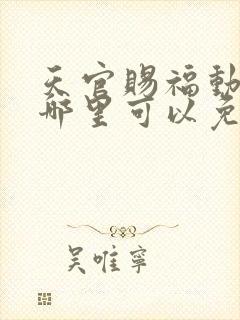 天官賜福動
哪里可以免
吴唯寧